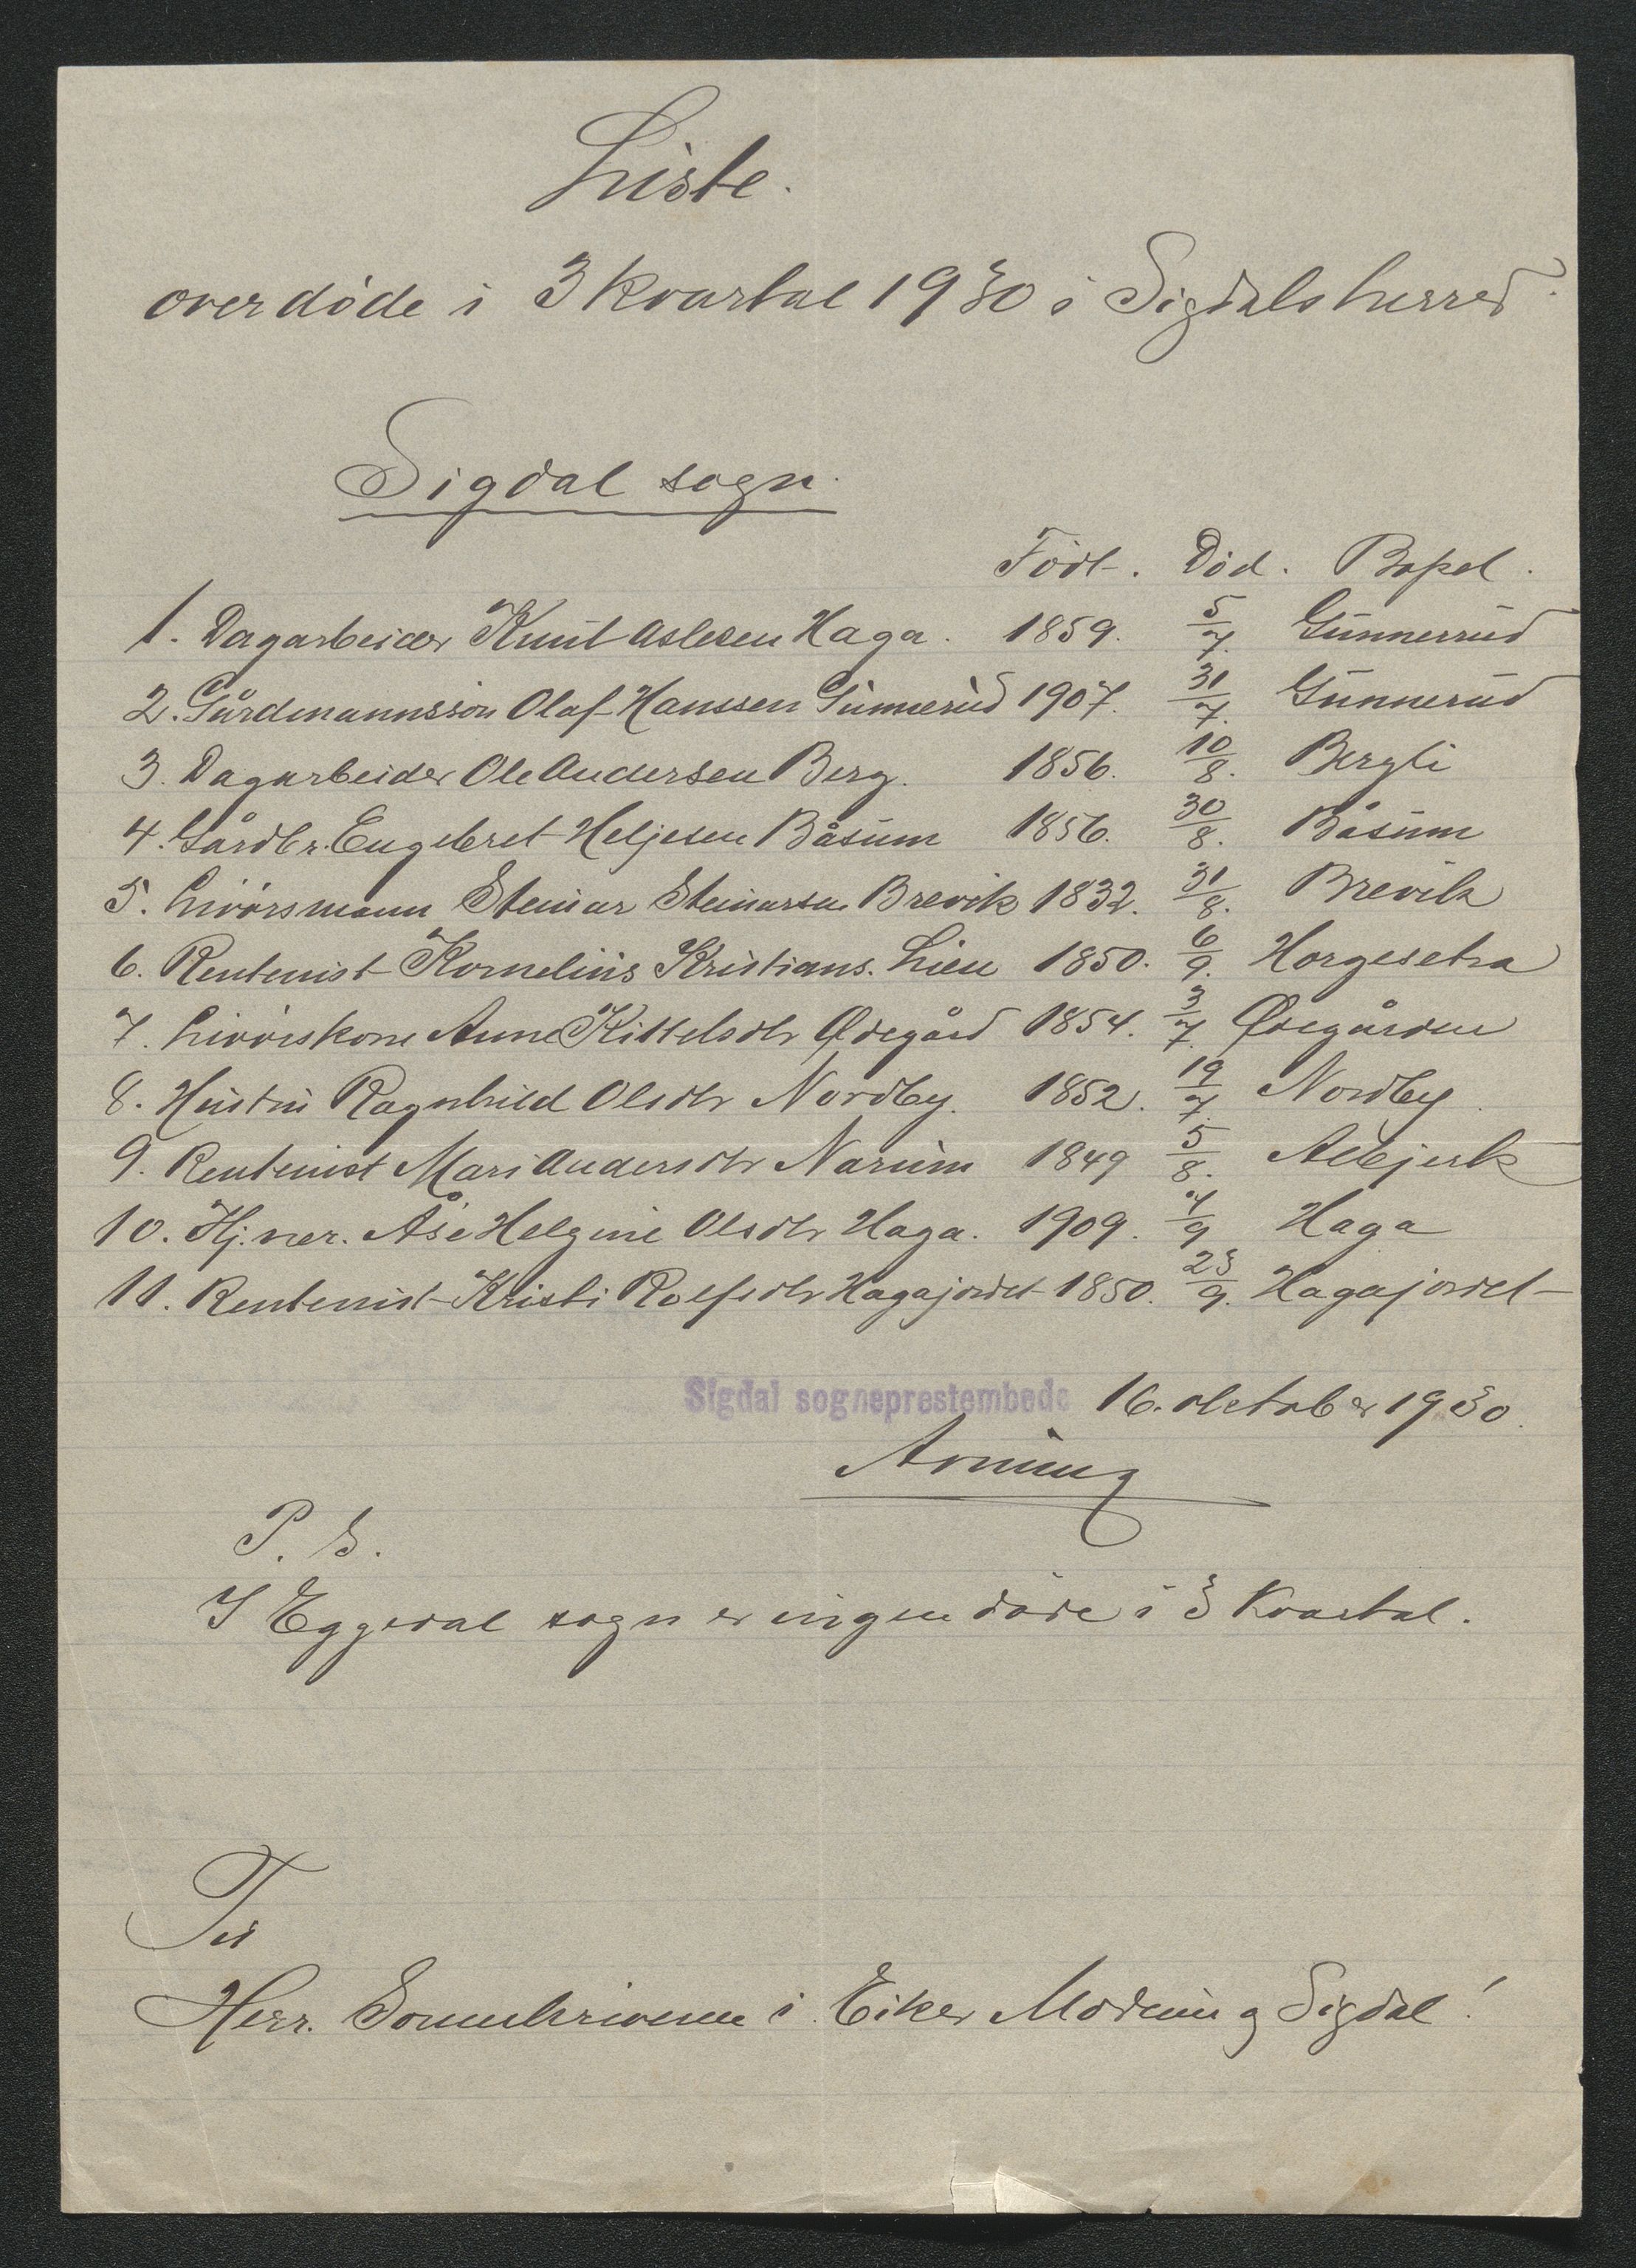 Liste.
over døde i 3 kvartal 1930 i Sigdals herred.
Sigdal sogn.
Født. Död. Bopel.
1. Dagarbeider Knut Aslesen Haga. 1859. 5/7. Gunnerud
2. Gårdmannssön Olaf Hanssen Gunnerud 1907. 31/7. Gunnerud
3. Dagarbeider Ole Andersen Berg. 1856. 10/8. Bergli
4. Gårdbr. Engebret Heljesen Båsum 1856. 30/8. Båsum
5. Livörsmann Steinar Steinarsen Brevik 1832. 31/8. Brevik
6. Rentenist Kornelius Kristians. Lien 1850. 6/9. Horgesetra
7. Livörskone Anne Kittelsdtr Ødegård 1854. 3/7. Ødegården
8. Hustru Ragnhild Olsdtr Nordby. 1852. 19/7. Nordby
9. Rentenist Mari Andersdtr Narum 1849 5/8.
10. Hj.vær. Åse Helgine Olsdtr Haga. 1909. 4/9 Haga
11. Rentenist Kristi Rolfsdtr Hagajordet 1850. 23/9. Hagajordet
Sigdal sogneprestembede 16. oktober 1930.
P. S.
I Eggedal sogn er ingen døde i 3 kvartal.
Til
Herr. Sorenskriveren i Eiker Modum og Sigdal!